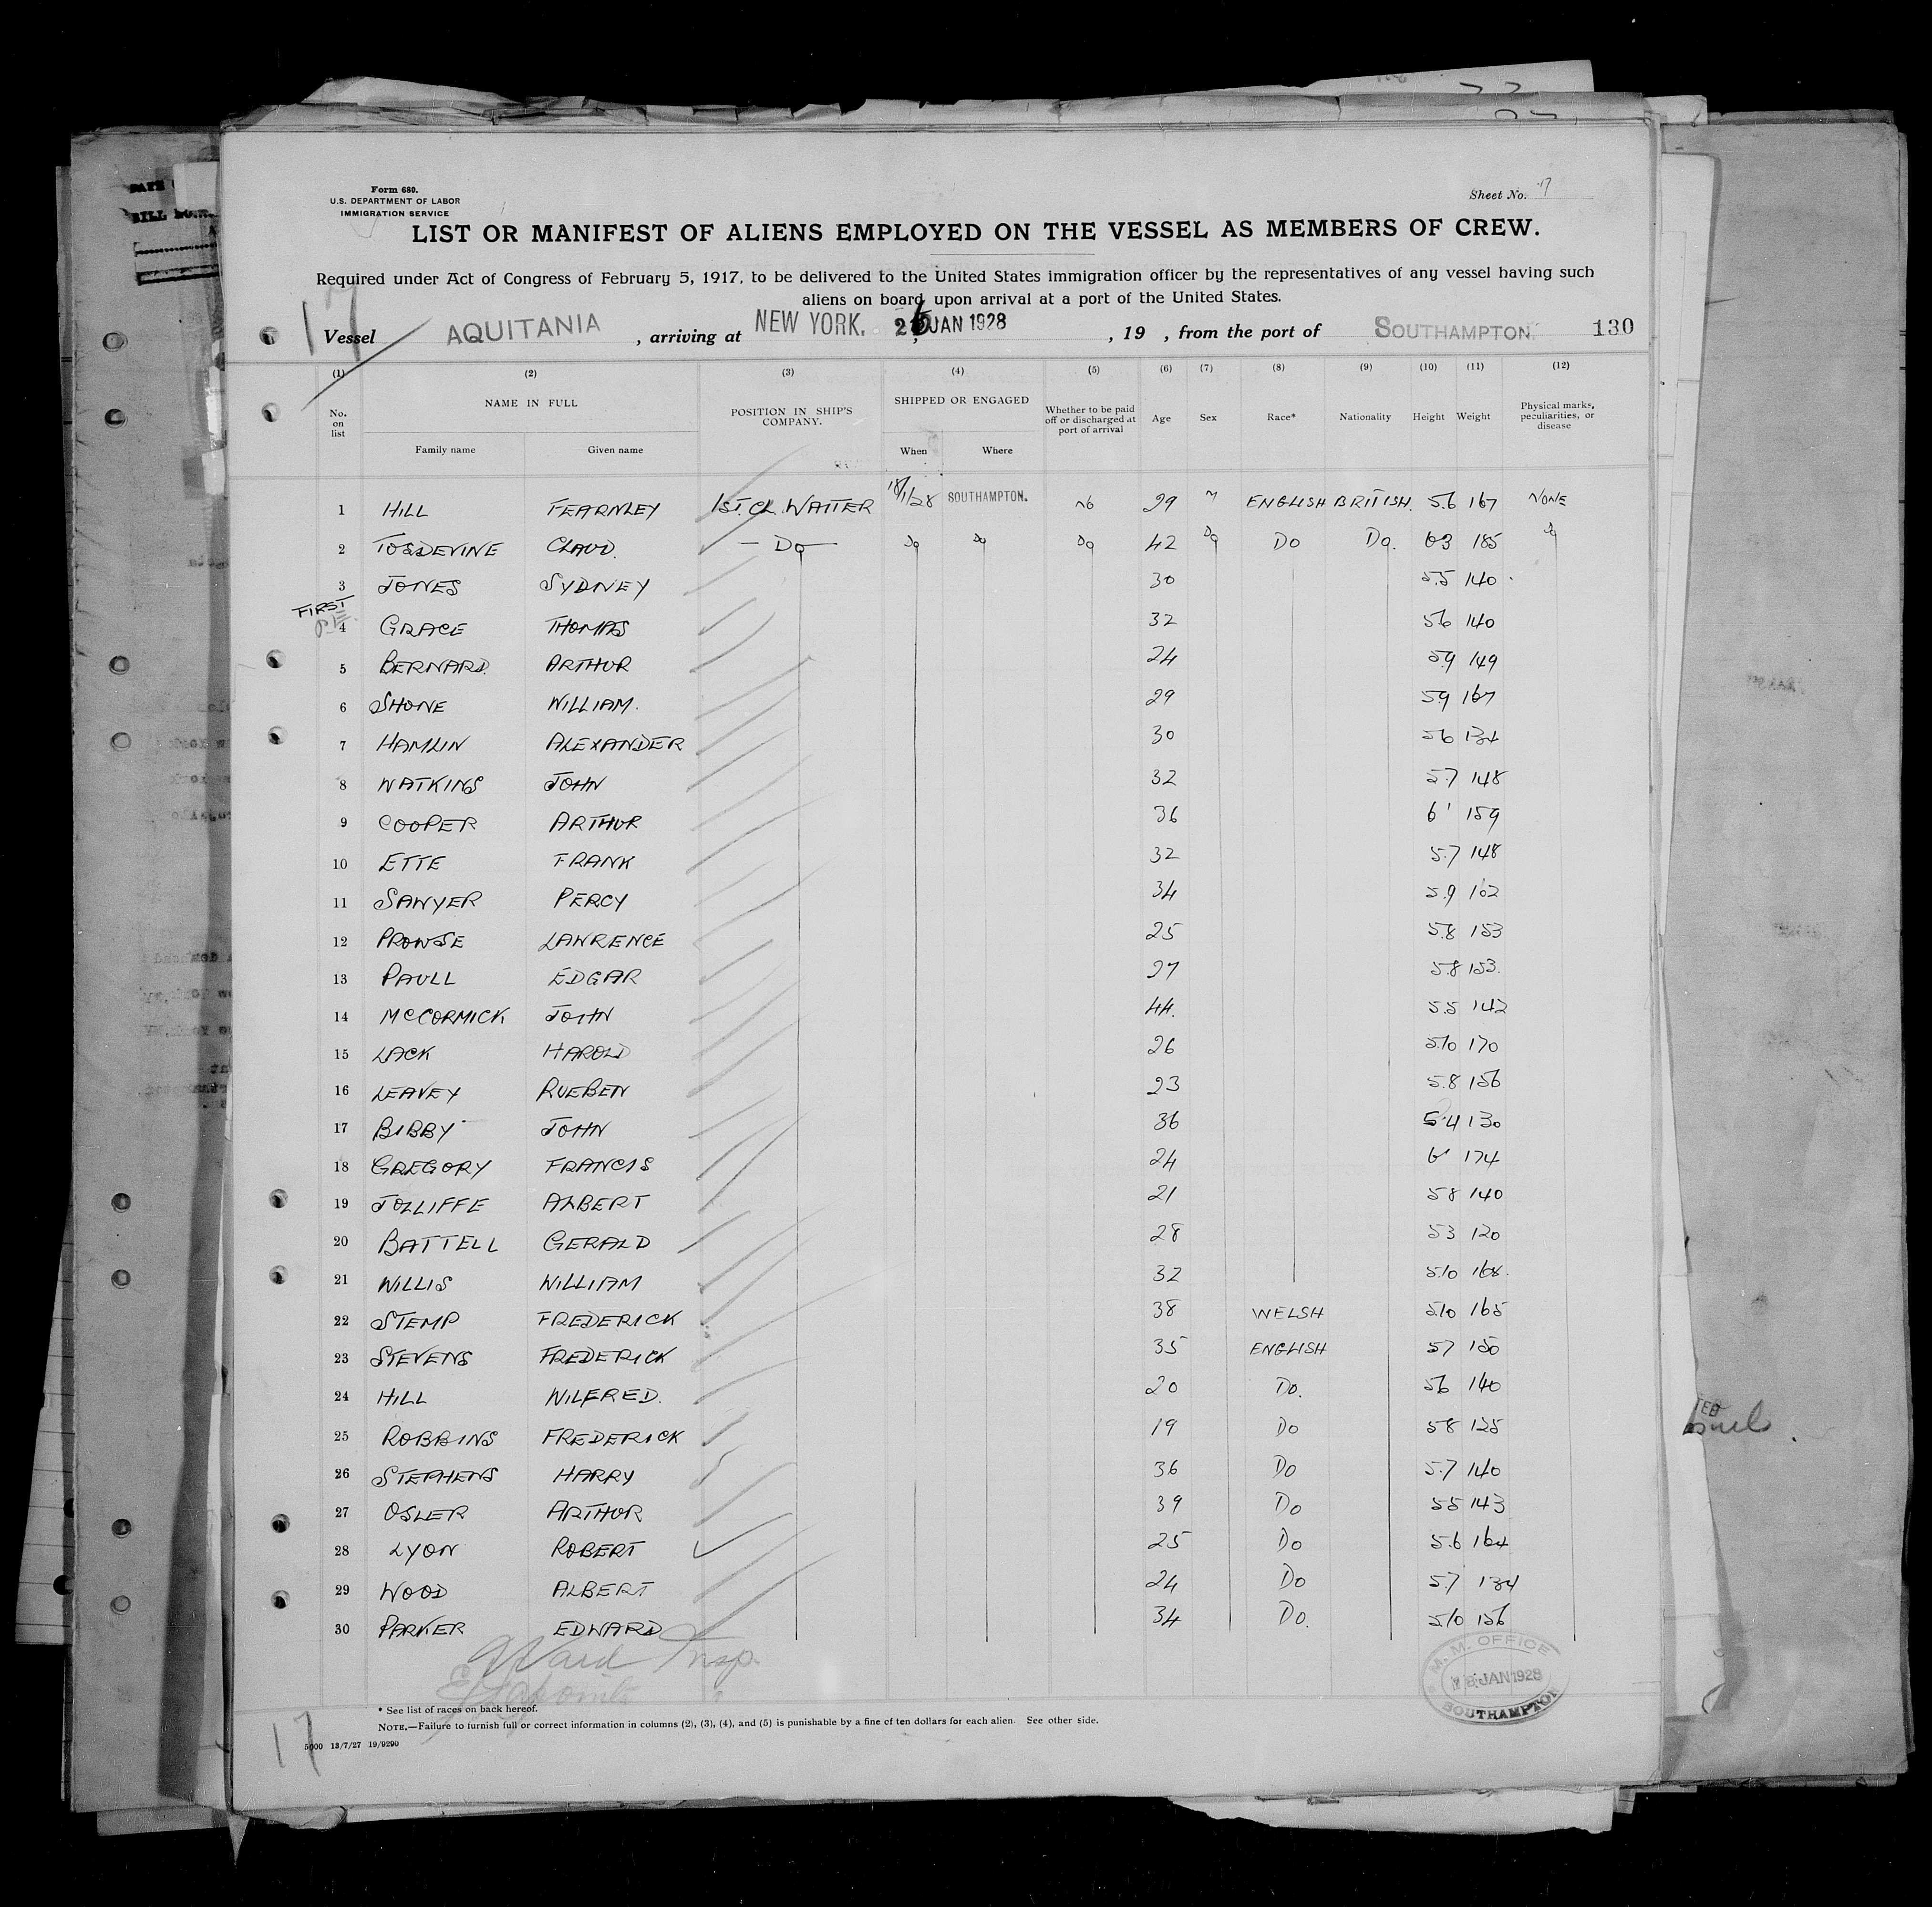 Form 680.
U.S. DEPARTMENT OF LABOR
IMMIGRATION SERVICE
Sheet No. 17
LIST OR MANIFEST OF ALIENS EMPLOYED ON THE VESSEL AS MEMBERS OF CREW.
Required under Act of Congress of February 5, 1917, to be delivered to the United States immigration officer by the representatives of any vessel having such
aliens on board upon arrival at a port of the United States.
17
Vessel AQUITANIA, arriving at NEW YORK. 26 JAN 1928, 19 , from the port of SOUTHAMPTON. 130
(1) (2) (3) (4) (5) (6) (7) (8) (9) (10) (11) (12)
No. on list NAME IN FULL POSITION IN SHIP'S COMPANY. SHIPPED OR ENGAGED Whether to be paid off or discharged at port of arrival Age Sex Race* Nationality Height Weight Physical marks, peculiarities, or disease
Family name Given name When Where
1 HILL FEARNLEY 1ST. CL. WAITER 18/1/28 SOUTHAMPTON. NO 29 M ENGLISH BRITISH. 5.6 167 NONE
2 TOSDEVINE CLAUD. — Do — Do Do Do 42 Do Do Do. 63 185 Do
3 JONES SYDNEY 30 5.5 140
FIRST
4 GRACE THOMAS 32 56 140
5 BERNARD. ARTHUR 24 59 149
6 SHONE WILLIAM. 29 59 167
7 HAMLIN ALEXANDER 30 56 134
8 WATKINS JOHN 32 5.7 148
9 COOPER ARTHUR 36 6' 159
10 ETTE FRANK 32 5.7 148
11 SAWYER PERCY 34 5.9 162
12 PROWSE LAWRENCE 25 5.8 153
13 PAULL EDGAR 27 5.8 153.
14 McCORMICK JOHN 44. 5.5 142
15 LACK HAROLD 26 5.10 170
16 LEAVEY RUEBEN 23 5.8 156
17 BIBBY JOHN 36 5.4 130
18 GREGORY FRANCIS 24 6' 174
19 JOLLIFFE ALBERT 21 58 140
20 BATTELL GERALD 28 53 120
21 WILLIS WILLIAM 32 5.10 168.
22 STEMP FREDERICK 38 WELSH 5.10 165
23 STEVENS FREDERICK 35 ENGLISH 57 150
24 HILL WILFRED. 20 Do. 56 140
25 ROBBINS FREDERICK 19 Do 58 125
26 STEPHENS HARRY 36 Do 5.7 140
27 OSLER ARTHUR 39 Do 55 143
28 LYON ROBERT 25 Do 5.6 164
29 WOOD ALBERT 24 Do 5.7 134
30 PARKER EDWARD 34 Do. 5.10 156
Ward Insp.
M.M. OFFICE
18 JAN 1928
SOUTHAMPTON
* See list of races on back hereof.
NOTE.—Failure to furnish full or correct information in columns (2), (3), (4), and (5) is punishable by a fine of ten dollars for each alien. See other side.
17
5000 13/7/27 19/9290